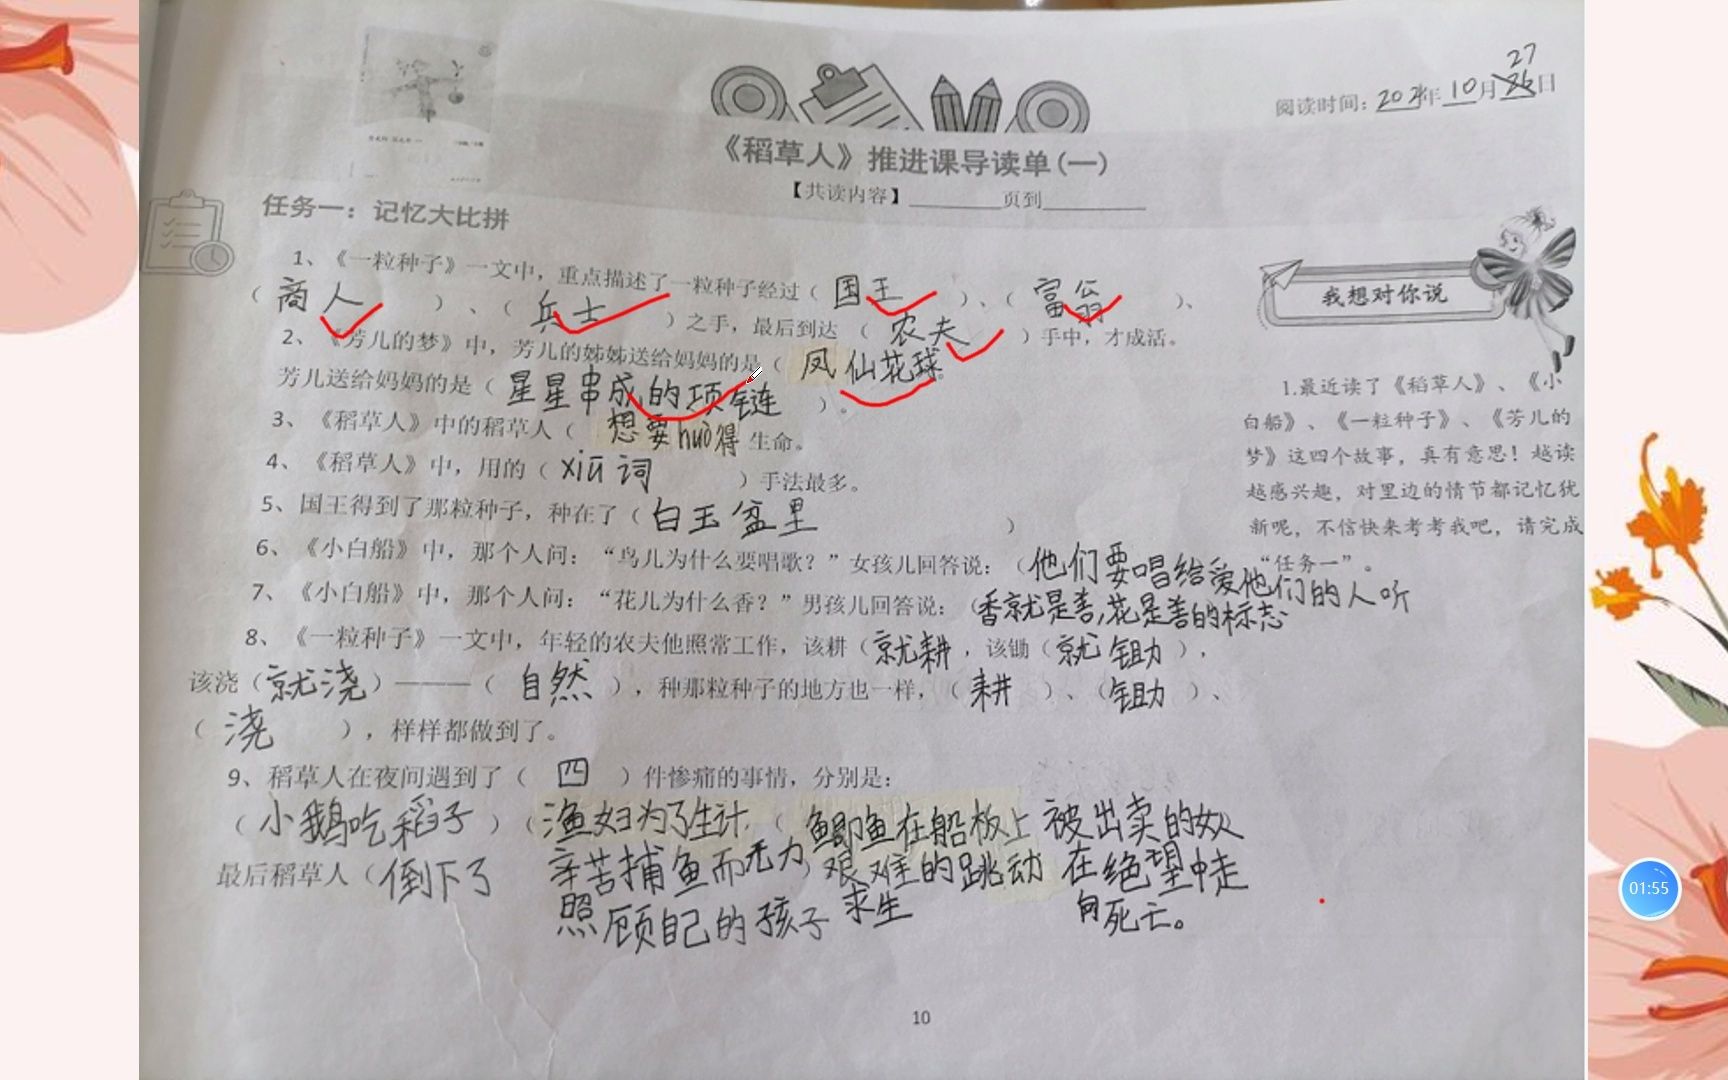 阅读时间：2024年10月27日
《稻草人》推进课导读单(一)
【共读内容】________页到________
任务一：记忆大比拼
1、《一粒种子》一文中，重点描述了一粒种子经过（国王）、（富翁）、
（商人）、（兵士）之手，最后到达（农夫）手中，才成活。
2、《芳儿的梦》中，芳儿的姊姊送给妈妈的是（凤仙花球
芳儿送给妈妈的是（星星串成的项链）。
3、《稻草人》中的稻草人（想要huò得生命。
4、《稻草人》中，用的（xiū词）手法最多。
5、国王得到了那粒种子，种在了（白玉盆里）
6、《小白船》中，那个人问：“鸟儿为什么要唱歌？”女孩儿回答说：（他们要唱给爱他们的人听
7、《小白船》中，那个人问：“花儿为什么香？”男孩儿回答说：（香就是善,花是善的标志
8、《一粒种子》一文中，年轻的农夫他照常工作，该耕（就耕，该锄（就锄），
该浇（就浇）———（自然），种那粒种子的地方也一样，（耕）、（锄）、
（浇），样样都做到了。
9、稻草人在夜间遇到了（四）件惨痛的事情，分别是：
（小鹅吃稻子）（渔妇为了生计辛苦捕鱼而无力照顾自己的孩子）（鲫鱼在船板上艰难的跳动求生 被出卖的女人在绝望中走向死亡。
最后稻草人（倒下了
我想对你说
1.最近读了《稻草人》、《小
白船》、《一粒种子》、《芳儿的
梦》这四个故事，真有意思！越读
越感兴趣，对里边的情节都记忆犹
新呢，不信快来考考我吧，请完成
“任务一”。
10
01:55